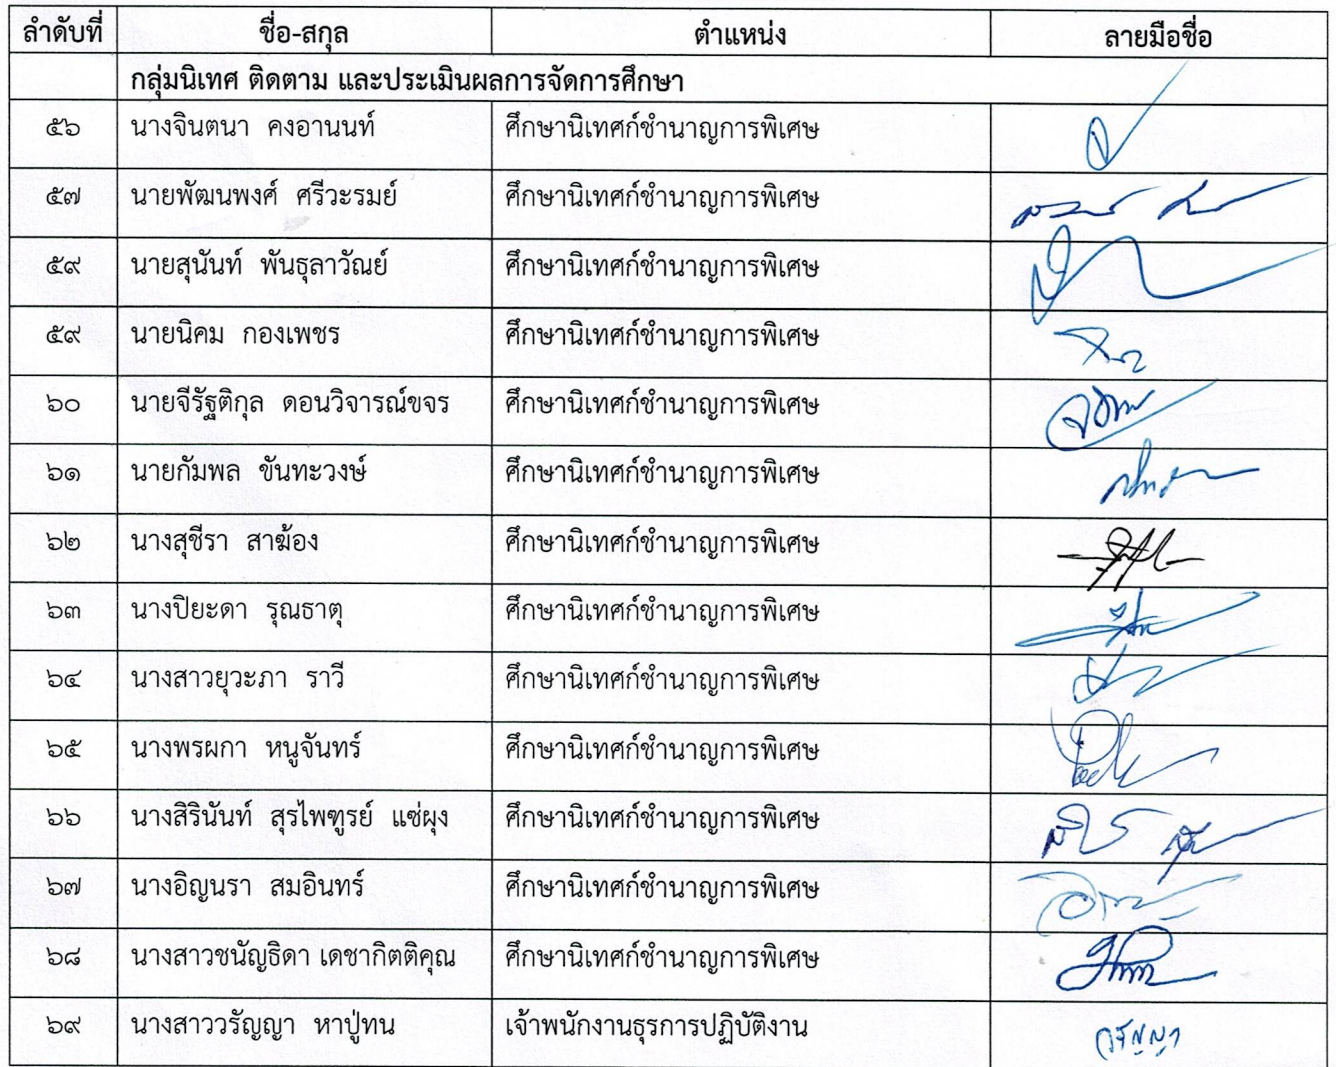 ลำดับที่ ชื่อ-สกุล ตำแหน่ง ลายมือชื่อ
กลุ่มนิเทศ ติดตาม และประเมินผลการจัดการศึกษา
๕๖ นางจินตนา คงอานนท์ ศึกษานิเทศก์ชำนาญการพิเศษ
๕๗ นายพัฒนพงศ์ ศรีวะรมย์ ศึกษานิเทศก์ชำนาญการพิเศษ
๕๙ นายสุนันท์ พันธุลาวัณย์ ศึกษานิเทศก์ชำนาญการพิเศษ
๕๙ นายนิคม กองเพชร ศึกษานิเทศก์ชำนาญการพิเศษ
๖๐ นายจีรัฐติกุล ดอนวิจารณ์ขจร ศึกษานิเทศก์ชำนาญการพิเศษ
๖๑ นายกัมพล ขันทะวงษ์ ศึกษานิเทศก์ชำนาญการพิเศษ
๖๒ นางสุชีรา สาฆ้อง ศึกษานิเทศก์ชำนาญการพิเศษ
๖๓ นางปิยะดา รุณธาตุ ศึกษานิเทศก์ชำนาญการพิเศษ
๖๔ นางสาวยุวะภา ราวี ศึกษานิเทศก์ชำนาญการพิเศษ
๖๕ นางพรผกา หนูจันทร์ ศึกษานิเทศก์ชำนาญการพิเศษ
๖๖ นางสิรินันท์ สุรไพฑูรย์ แซ่ผุง ศึกษานิเทศก์ชำนาญการพิเศษ
๖๗ นางอิญนรา สมอินทร์ ศึกษานิเทศก์ชำนาญการพิเศษ
๖๘ นางสาวชนัญธิดา เดชากิตติคุณ ศึกษานิเทศก์ชำนาญการพิเศษ
๖๙ นางสาววรัญญา หาปู่ทน เจ้าพนักงานธุรการปฏิบัติงาน วรัญญา